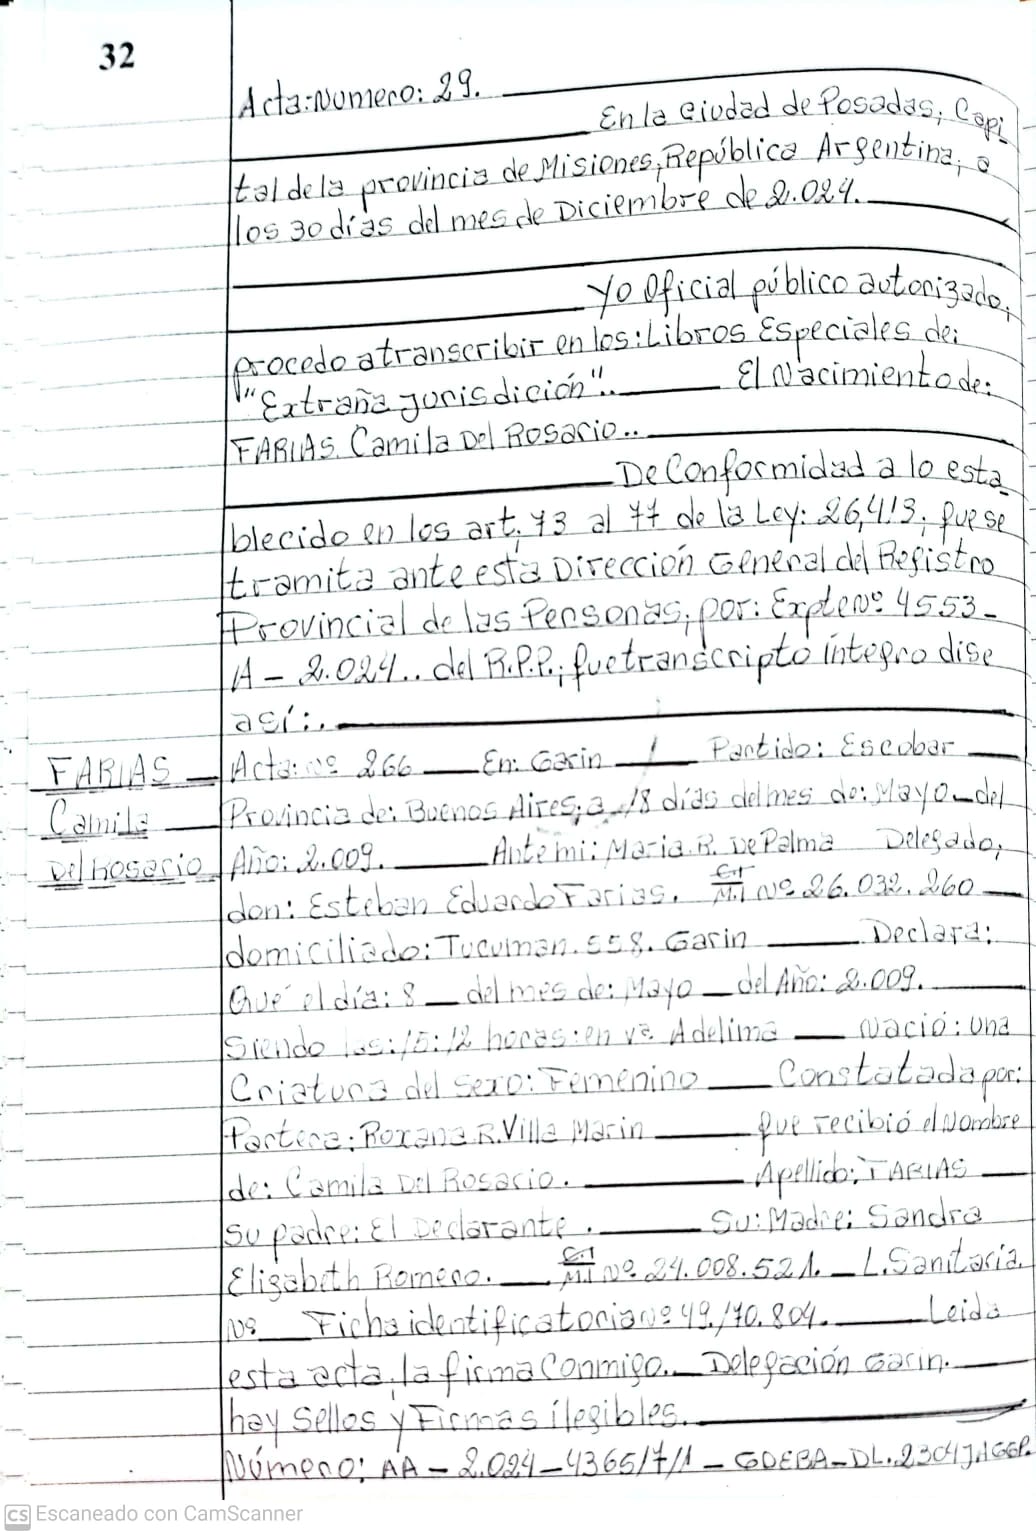 32
Acta: Numero: 29.
En la Ciudad de Posadas, Capi_
tal de la provincia de Misiones, República Argentina, a
los 30 días del mes de Diciembre de 2.024.
Yo Oficial público autorizado,
procedo a transcribir en los: Libros Especiales de:
"Extraña Jurisdición".. El Nacimiento de:
FARIAS. Camila Del Rosario..
De Conformidad a lo esta_
blecido en los art. 73 al 77 de la Ley: 26,413; que se
tramita ante esta Dirección General del Registro
Provincial de las Personas, por: Expte Nº 4553-
A - 2.024.. del R.P.P.; que transcripto íntegro dise
así:.
FARIAS Acta: Nº 266 En: Garin Partido: Escobar
Camila Provincia de: Buenos Aires; a 18 días del mes de: Mayo del
Del Rosario Año: 2.009. Ante mi: Maria. R. De Palma Delegado,
don: Esteban Eduardo Farias. C.I/M.I Nº 26.032.260
domiciliado: Tucuman. 558. Garin Declara:
Que el día: 8 del mes de: Mayo del Año: 2.009.
Siendo las: 15:12 horas: en Adelima Nació: una
Criatura del Sexo: Femenino Constatada por:
Partera: Roxana R. Villa Marin que recibió el Nombre
de: Camila Del Rosario. Apellido: FARIAS
Su padre: El Declarante. Su: Madre: Sandra
Elizabeth Romero. C.I/M.I Nº 24.008.521. L. Sanitaria.
Nº Ficha identificatoria Nº 49./70.804. Leida
esta acta, la firma Conmigo. Delegación Garin.
hay Sellos y Firmas ilegibles.
Número: AA - 2.024 - GDEBA-DL.
CS Escaneado con CamScanner